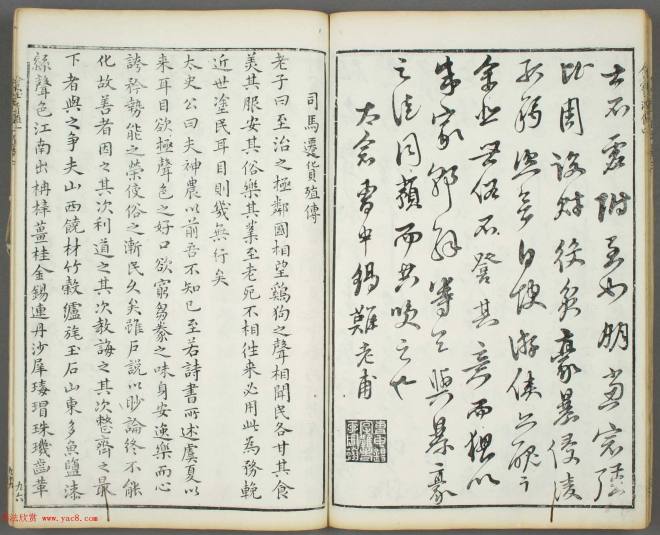 士不虛附至如朋黨宗強
比周設財役貧豪暴侵凌
孤弱恣欲自快游俠亦醜之
余悲世俗不察其意而猥以
朱家郭解等令與暴豪
之徒同類而共笑之也
司馬遷貨殖傳
老子曰至治之極鄰國相望鷄狗之聲相聞民各甘其食
美其服安其俗樂其業至老死不相往來必用此為務輓
近世塗民耳目則幾無行矣
太史公曰夫神農以前吾不知已至若詩書所述虞夏以
來耳目欲極聲色之好口欲窮芻豢之味身安逸樂而心
誇矜勢能之榮使俗之漸民久矣雖戶說以眇論終不能
化故善者因之其次利道之其次教誨之其次整齊之最
下者與之爭夫山西饒材竹穀纑旄玉石山東多魚鹽漆
絲聲色江南出枏梓薑桂金錫連丹沙犀瑇瑁珠璣齒革
九六
www.yac8.com